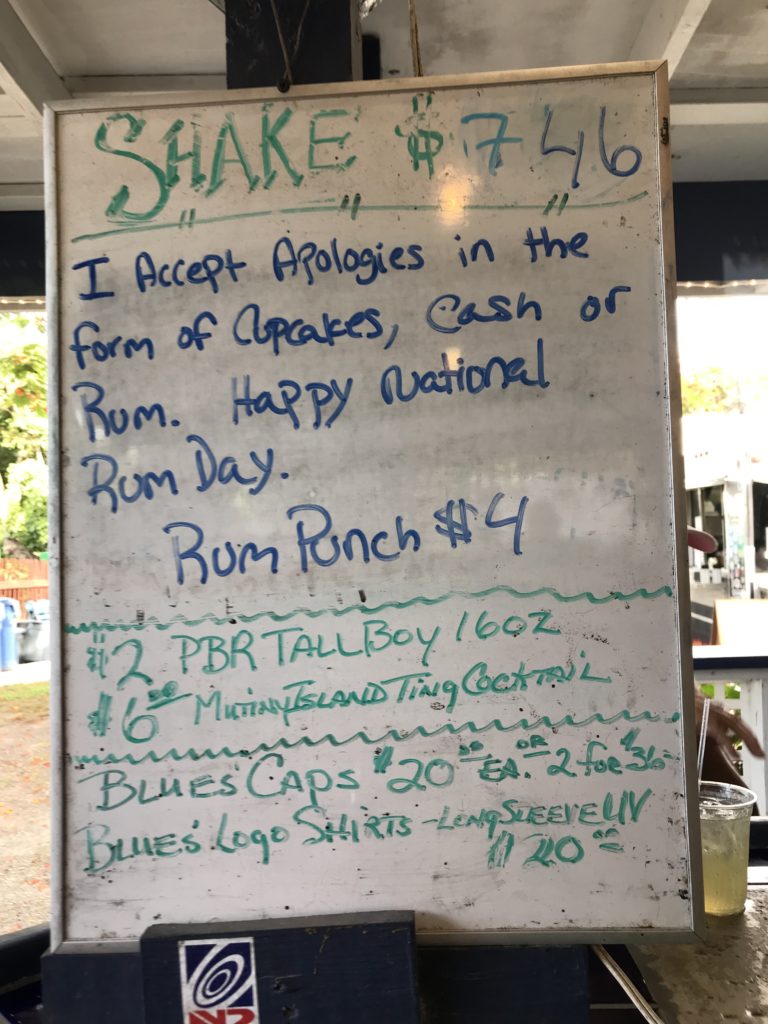 SHAKE $746
I Accept Apologies in the
form of Cupcakes, Cash or
Rum. Happy National
Rum Day.
Rum Punch $4
$2 PBR TALL BOY 16OZ
$6.00 MUTINY ISLAND TING COCKTAIL
BLUES' CAPS $20.00 EA. OR 2 FOR $36
BLUES' LOGO SHIRTS - LONG SLEEVE UV
$20.00